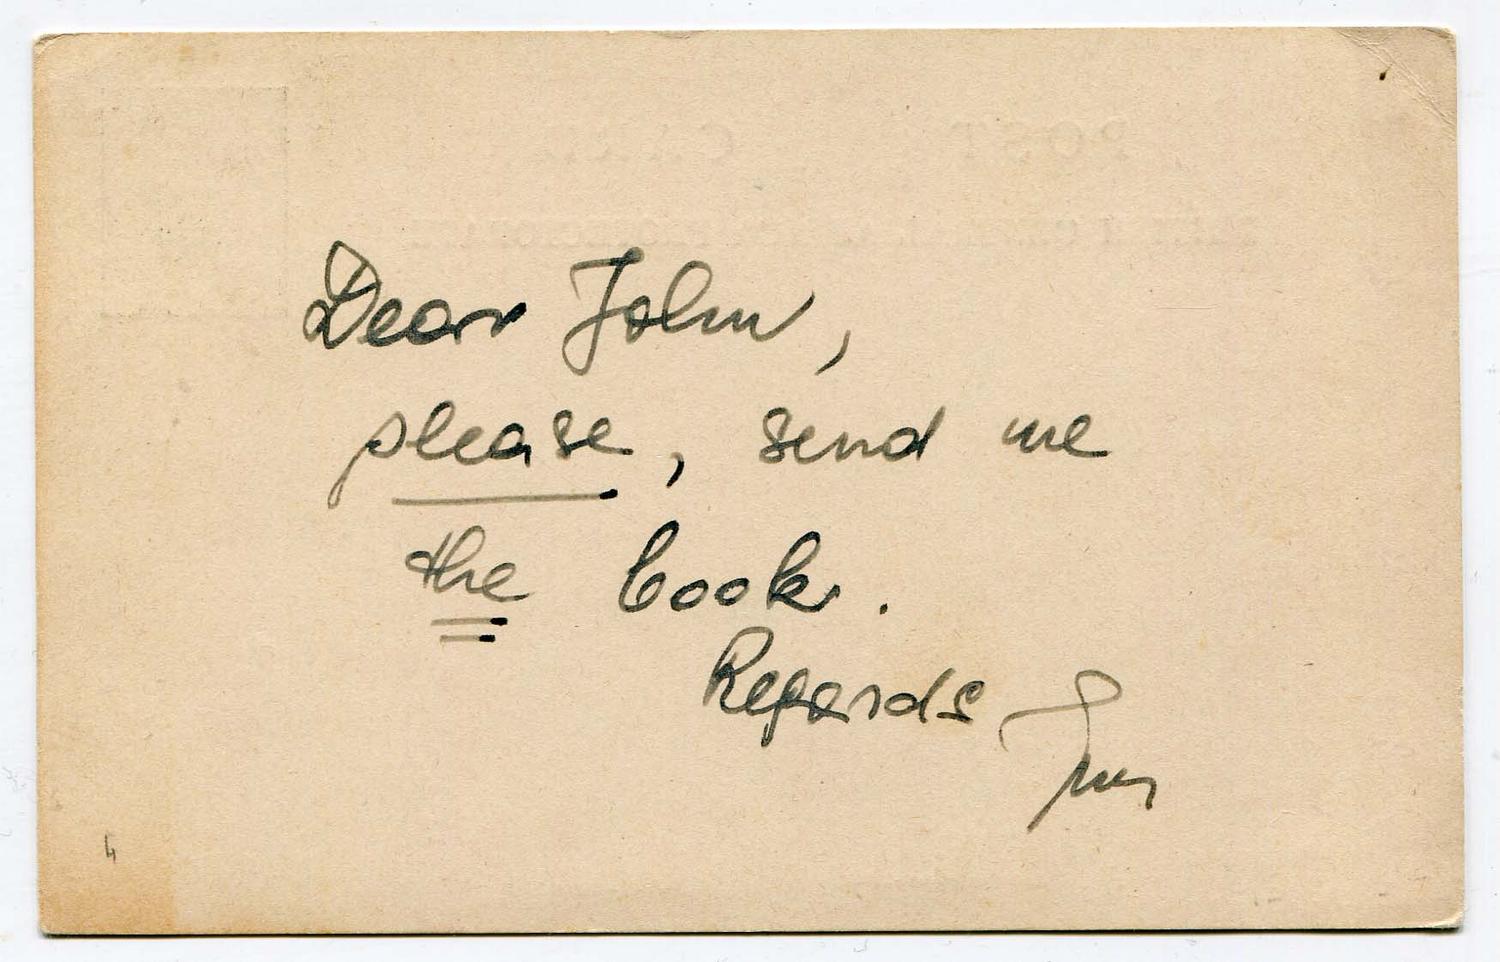 Dear John,
please, send me
the book.
Regards
4